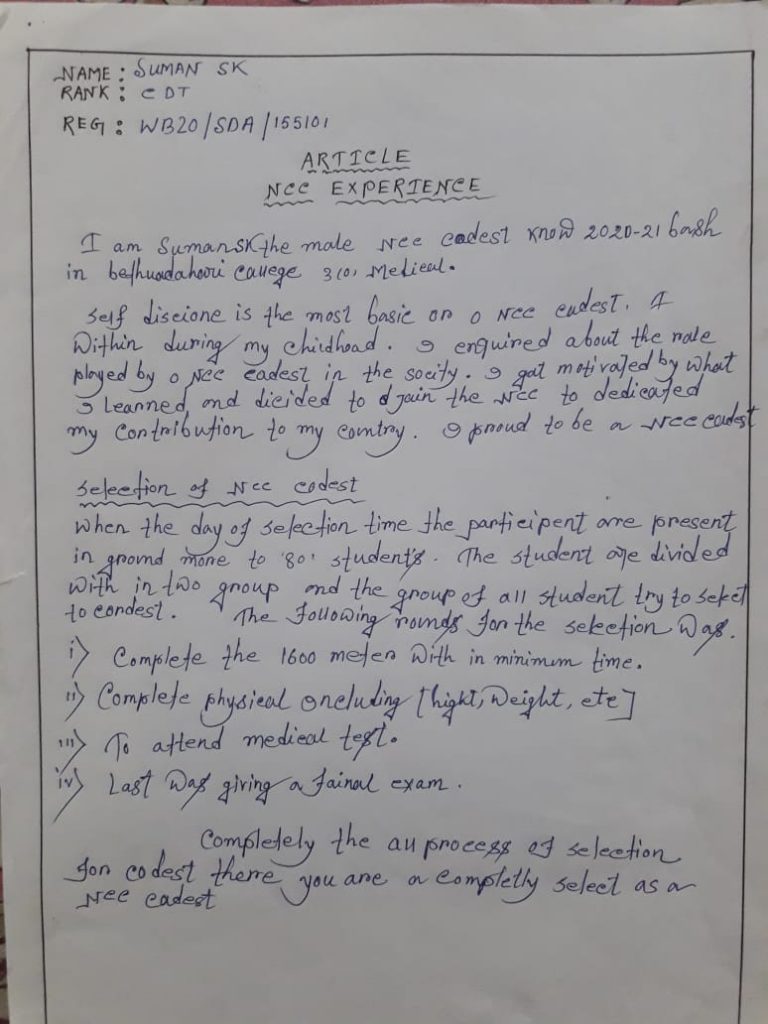 NAME : SUMAN SK
RANK : CDT
REG : WB20/SDA/155101
ARTICLE
NCC EXPERIENCE
I am Suman SK the male NCC cadest know 2020-21 bash
in bethuadahari callege 3(0) Medical.
Self discione is the most basic on o NCC cadest. I
Within during my childhood. I enquired about the role
played by o NCC cadest in the socity. I got motivated by what
I learned and dicided to join the NCC to dedicated
my contribution to my country. I proud to be a NCC cadest
Selection of NCC codest
When the day of selection time the participent are present
in ground more to '80' students. The student are divided
with in two group and the group of all student try to select
to condest. The following rounds for the selection was.
i) Complete the 1600 meter with in minimum time.
ii) Complete physical oncluding [hight, weight, etc]
iii) To attend medical test.
iv) Last was giving a fainal exam.
Completely the all process of selection
for codest there you are a completly select as a
NCC cadest